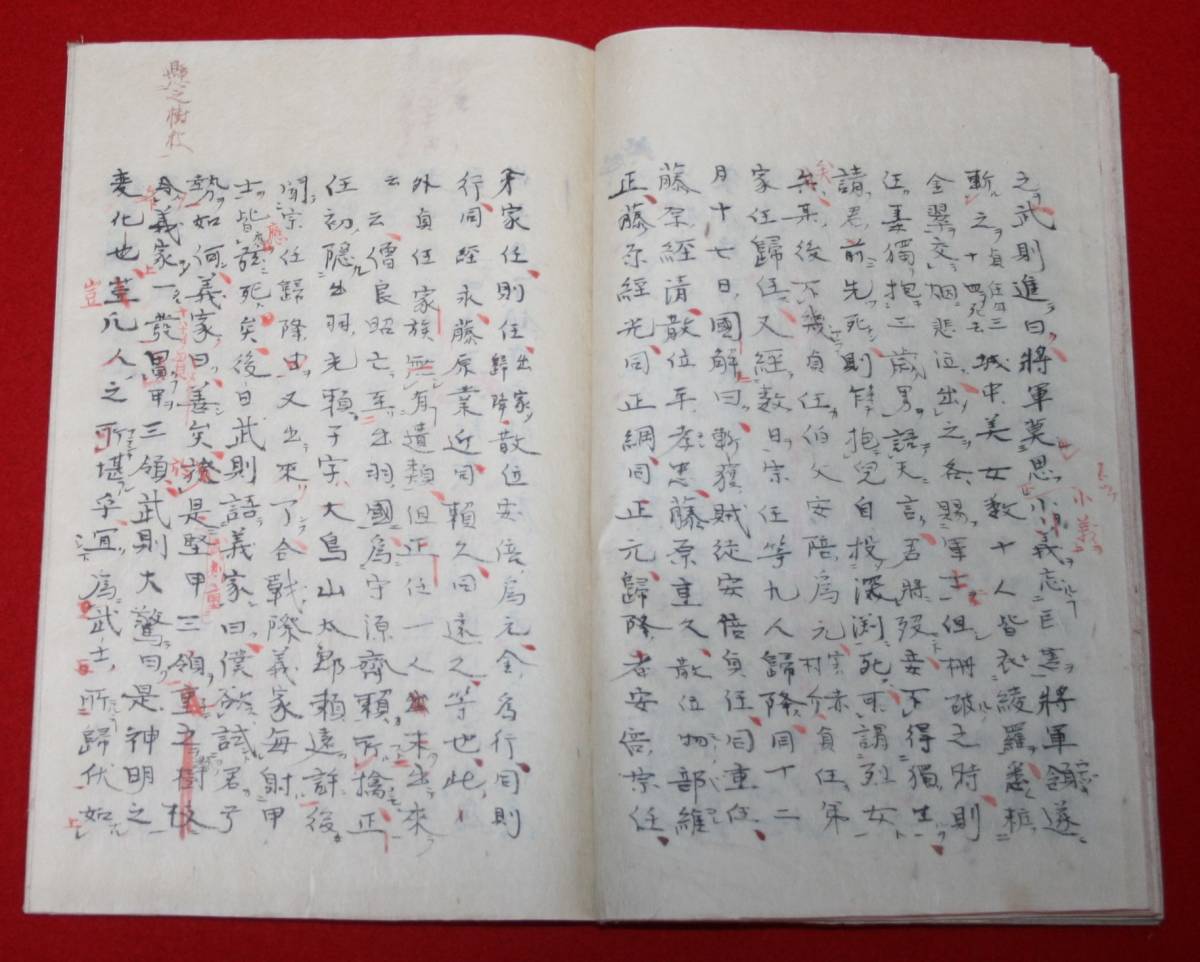 之武則進曰將軍莫思小義忘巨害將軍頷遂
斬之十四死去貞任年三城中美女數十人皆衣綾羅悉粧
金翠交烟悲泣出之各賜軍士但柵破之時則
任妻獨抱三歲男語夫言君將歿妾不得獨生
請君前先死則乍抱兒自投深渕死可謂烈女
矣其後不幾貞任伯父安陪為元字赤村介貞任弟
家任歸任又經數日宗任等九人歸降同十二
月十七日國解曰斬獲賊徒安倍貞任同重任
藤原經清散位平孝忠藤原重久散位物部維
正藤原經光同正綱同正元歸降者安倍宗任
弟家任則任出家歸降散位安倍為元金為行同則
行同經永藤原業近同賴久同遠久等也此
外貞任家族無有遺類但正任一人未出來
云云僧良昭亡至出羽國為守源齊賴所擒正
任初隱出羽光賴子字大鳥山太郎賴遠許後
聞宗任歸降由又出來了合戰際義家每射甲
士皆應弦死矣後日武則語義家曰僕欲試君弓
勢如何義家曰善矣於是堅甲三領重之樹枝
令義家一發貫甲三領武則大驚曰是神明之
變化也豈凡人之所堪乎宜為武士所歸伏如
小義
懸之樹枝
豈